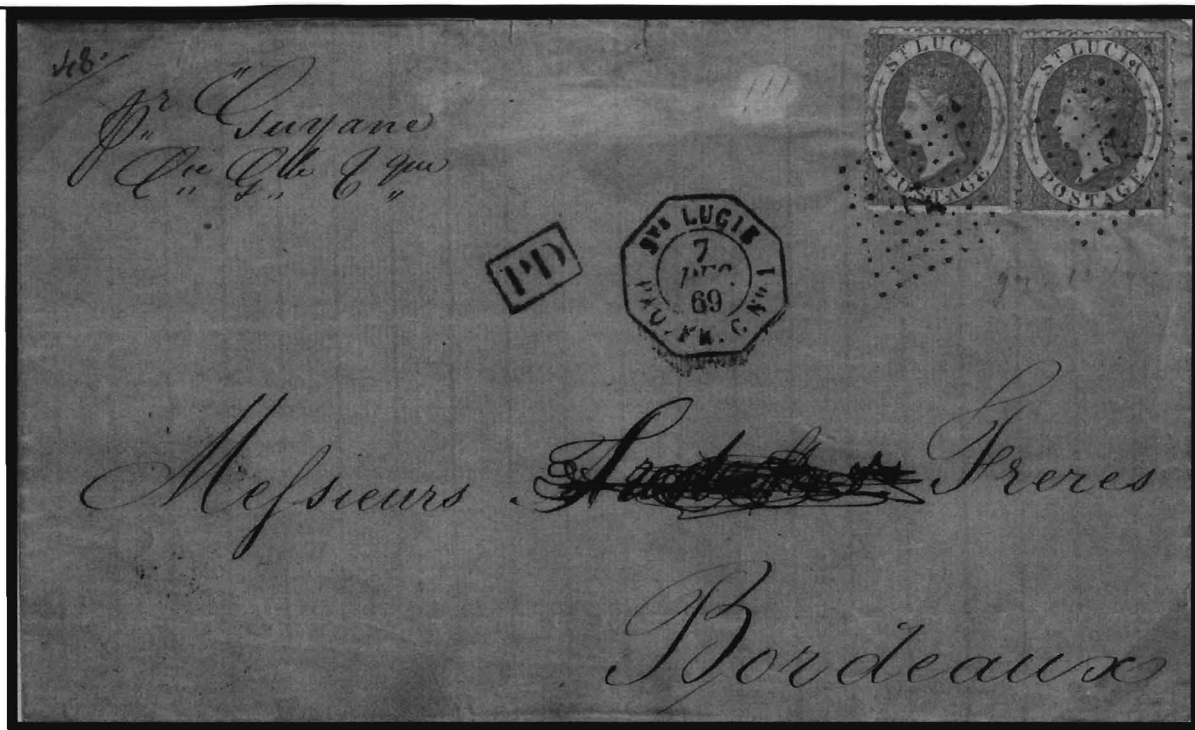 48.
pr "Guyane
Cie Gle Tque
ST LUCIA
POSTAGE
ST LUCIA
POSTAGE
PD
STE LUCIE
7
DEC.
69
PAQ. FR. C No 1
Messieurs Freres
Bordeaux